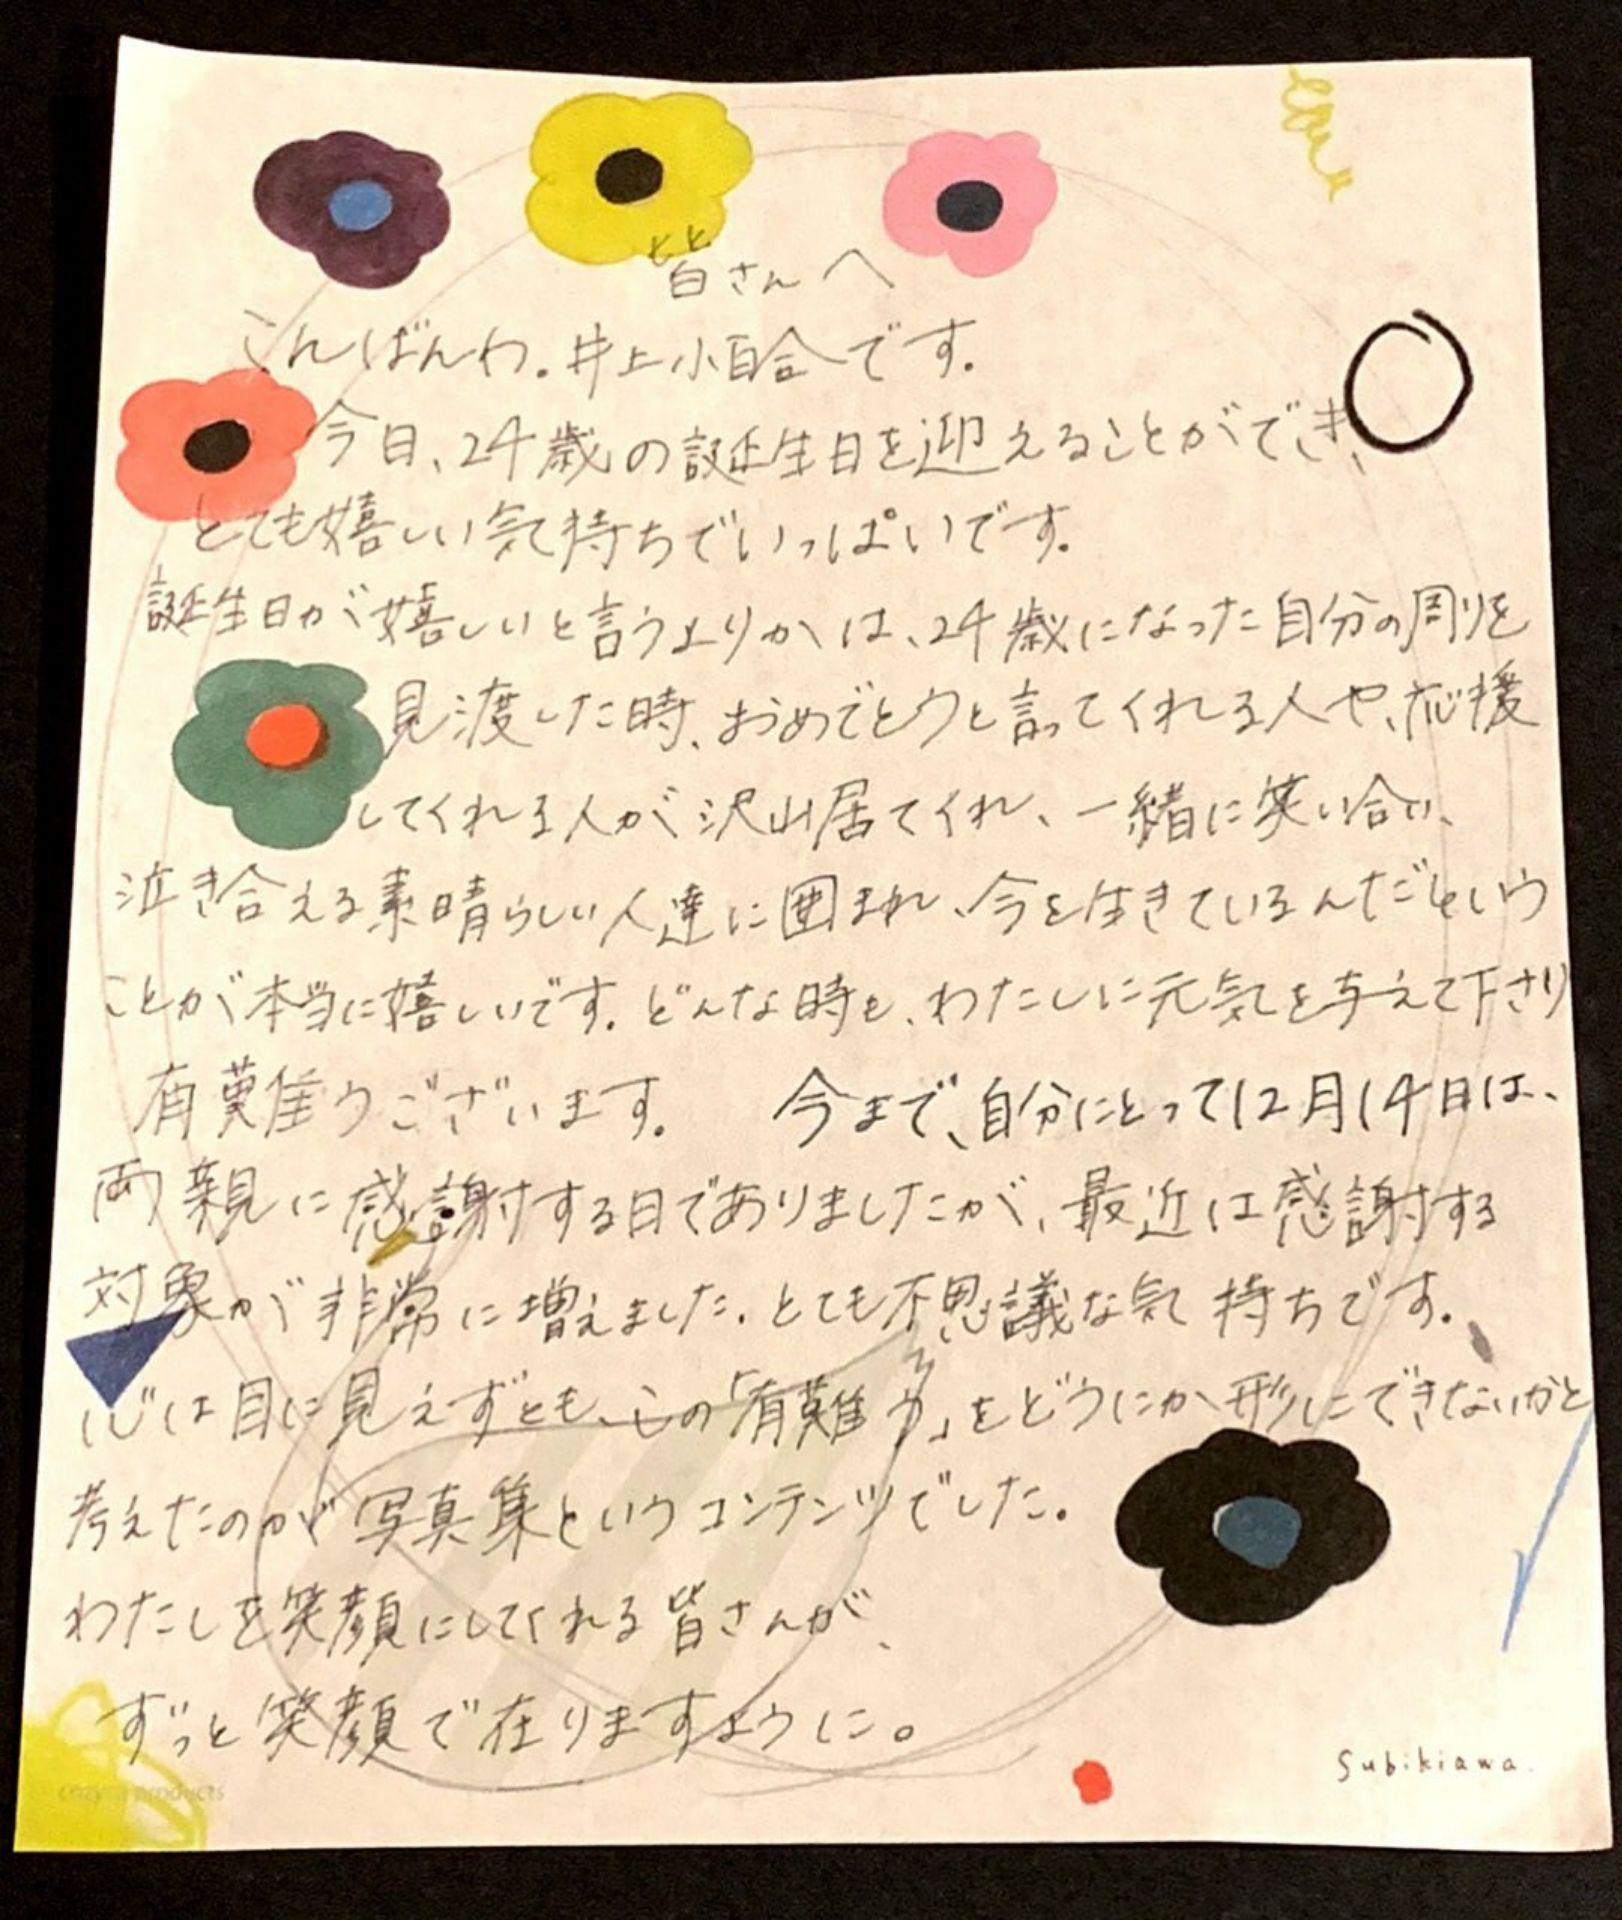 皆さんへ
こんばんわ。井上小百合です。
今日、24歳の誕生日を迎えることができ、
とても嬉しい気持ちでいっぱいです。
誕生日が嬉しいと言うよりかは、24歳になった自分の周りを
見渡した時、おめでとうと言ってくれる人や、応援
してくれる人が沢山居てくれ、一緒に笑い合い、
泣き合える素晴らしい人達に囲まれ、今を生きているんだという
ことが本当に嬉しいです。どんな時も、わたしに元気を与えて下さり
有難うございます。 今まで、自分にとって12月14日は、
両親に感謝する日でありましたが、最近は感謝する
対象が非常に増えました。とても不思議な気持ちです。
心は目に見えずとも、この「有難う」をどうにか形にできないかと
考えたのが写真集というコンテンツでした。
わたしを笑顔にしてくれる皆さんが、
ずっと笑顔で在りますように。
Subikiawa.
cozyca products